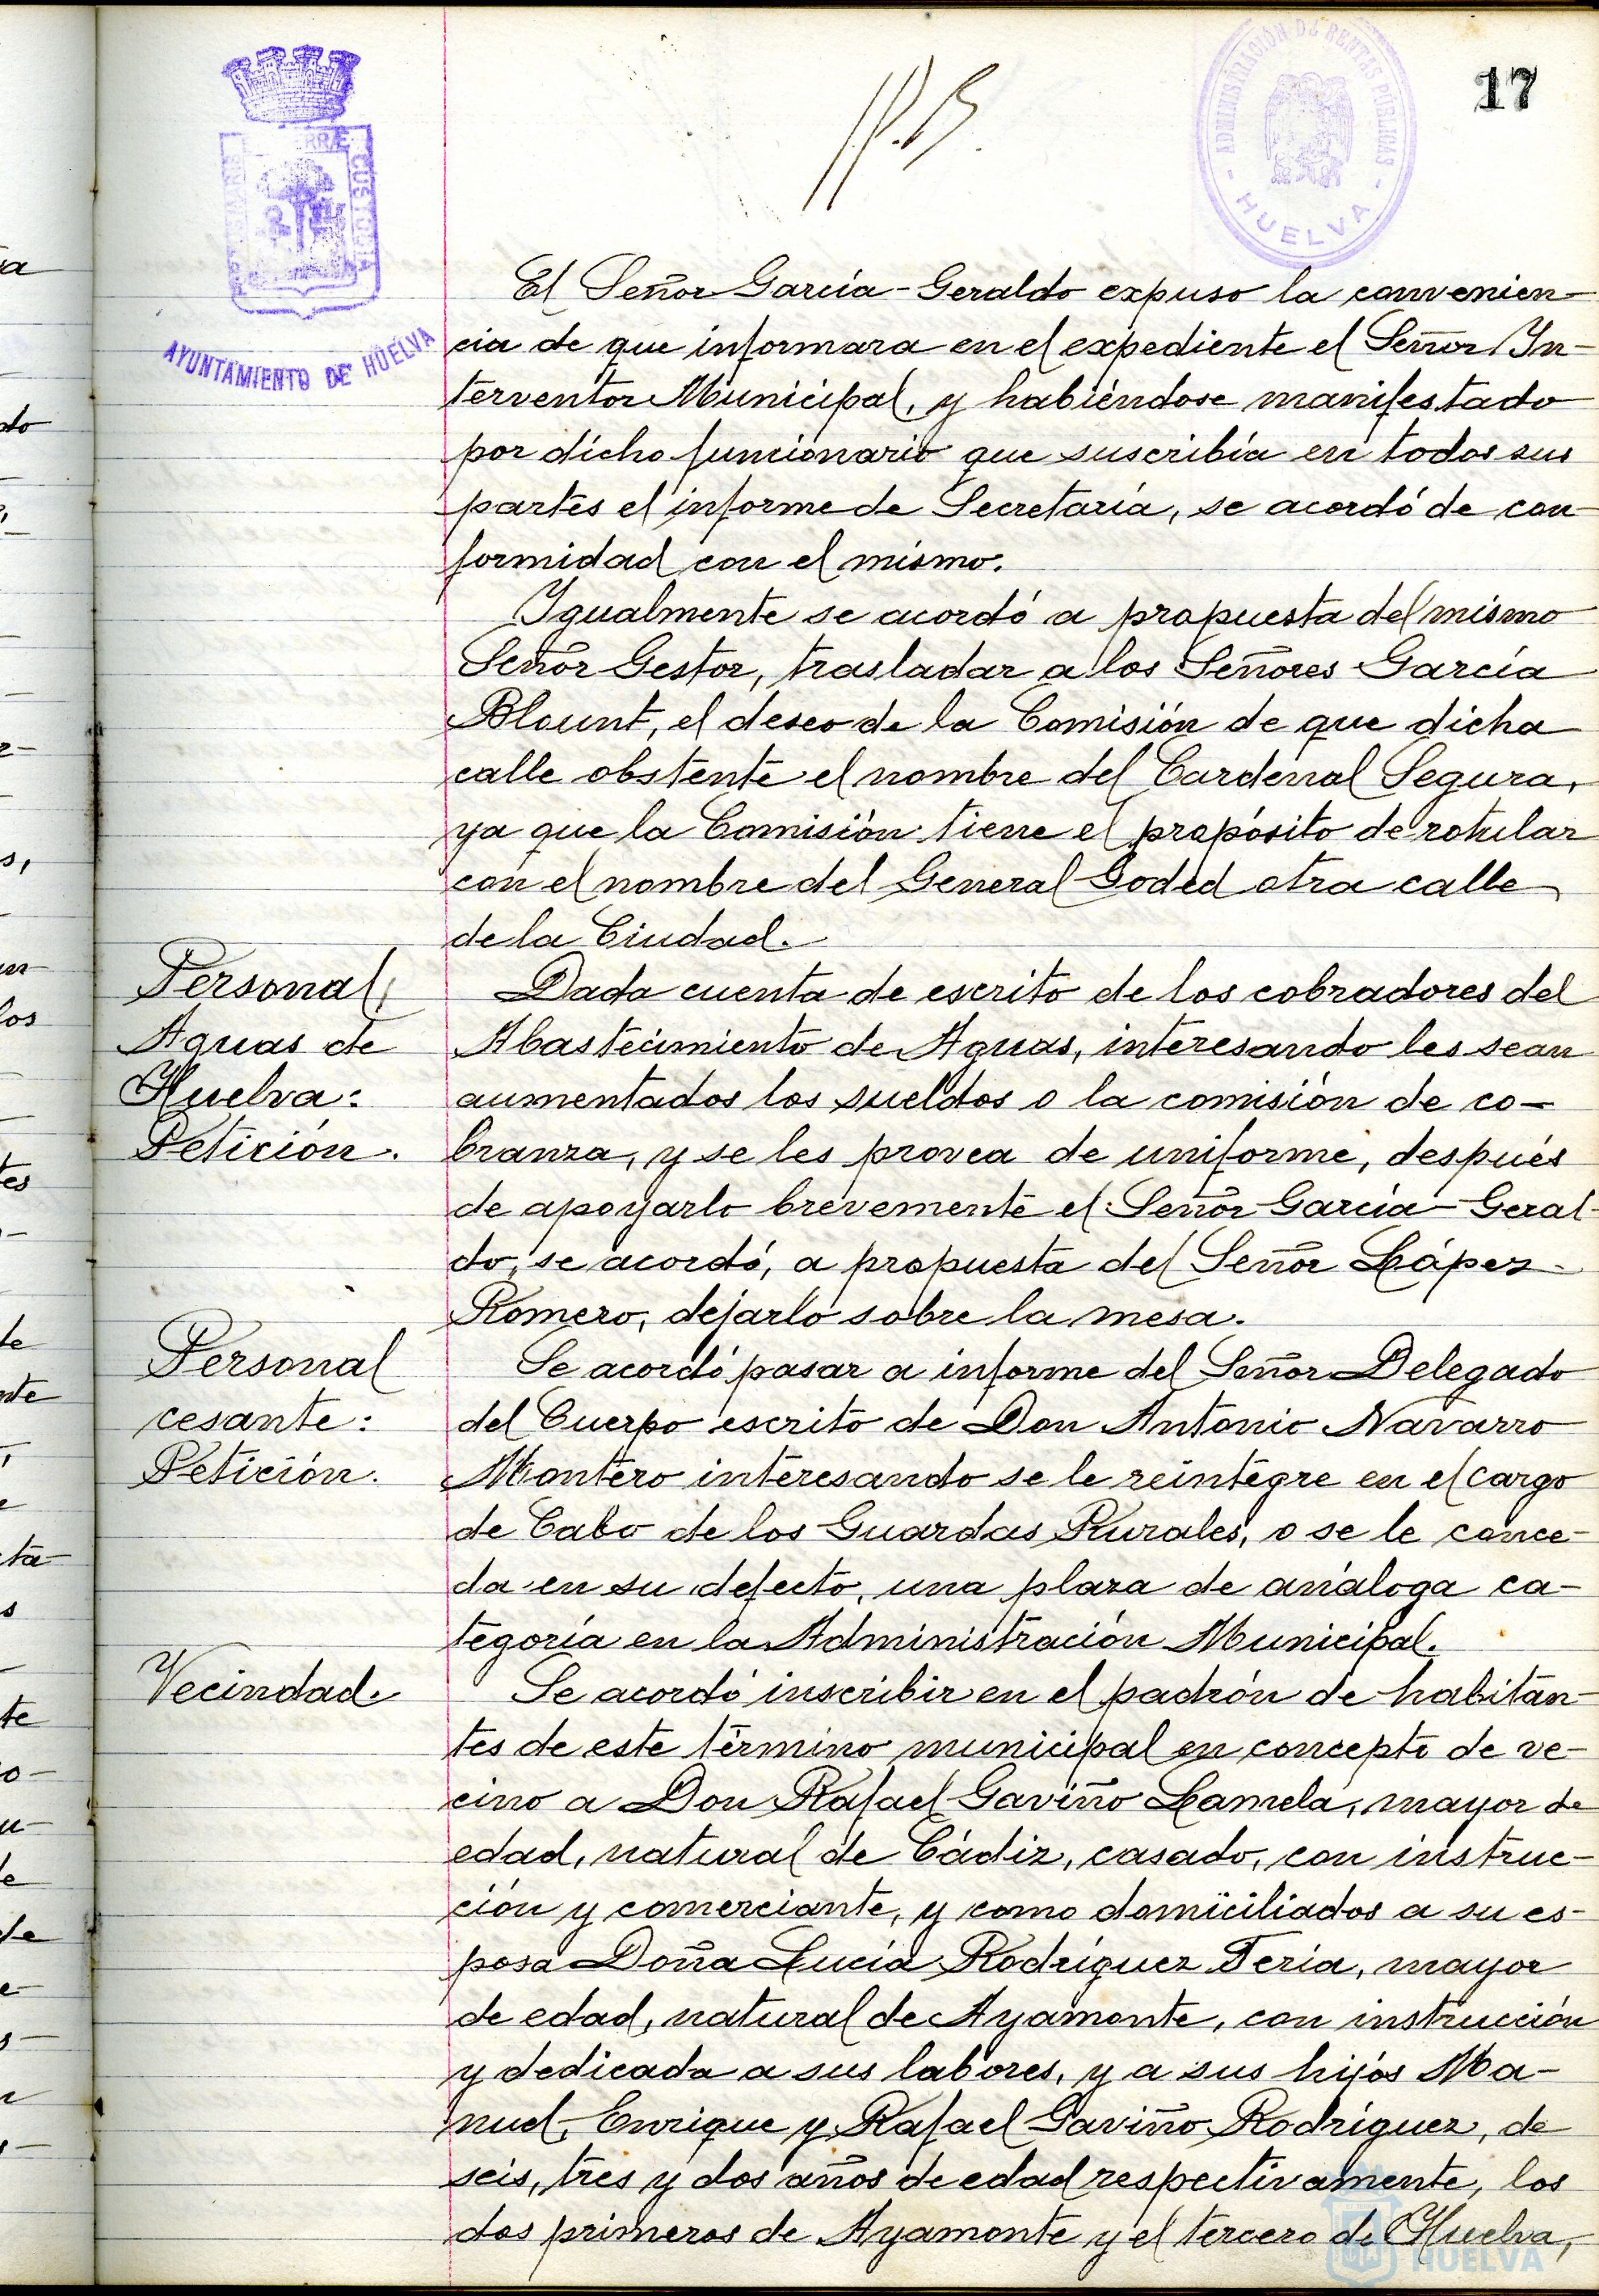 17
ADMINISTRACIÓN DE RENTAS PÚBLICAS
- HUELVA -
TERRÆ
CUSTODIA
AYUNTAMIENTO DE HUELVA
El Señor García-Geraldo expuso la convenien-
cia de que informara en el expediente el Señor In-
terventor Municipal, y habiéndose manifestado
por dicho funcionario que suscribía en todos sus
partes el informe de Secretaría, se acordó de con-
formidad con el mismo.
Igualmente se acordó a propuesta del mismo
Señor Gestor, trasladar a los Señores García
Blount, el deseo de la Comisión de que dicha
calle obstente el nombre del Cardenal Segura,
ya que la Comisión tiene el propósito de rotular
con el nombre del General Goded otra calle
de la Ciudad.
Personal,
Aguas de
Huelva:
Petición.
Dada cuenta de escrito de los cobradores del
Abastecimiento de Aguas, interesando les sean
aumentados los sueldos o la comisión de co-
branza, y se les provea de uniforme, después
de apoyarlo brevemente el Señor García-Geral-
do, se acordó, a propuesta del Señor López
Romero, dejarlo sobre la mesa.
Personal
cesante:
Petición.
Se acordó pasar a informe del Señor Delegado
del Cuerpo escrito de Don Antonio Navarro
Montero interesando se le reintegre en el cargo
de Cabo de los Guardas Rurales, o se le conce-
da en su defecto, una plaza de análoga ca-
tegoría en la Administración Municipal.
Vecindad.
Se acordó inscribir en el padrón de habitan-
tes de este término municipal en concepto de ve-
cino a Don Rafael Gaviño Lamela, mayor de
edad, natural de Cádiz, casado, con instruc-
ción y comerciante, y como domiciliados a su es-
posa Doña Lucía Rodríguez Feria, mayor
de edad, natural de Ayamonte, con instrucción
y dedicada a sus labores, y a sus hijos Ma-
nuel, Enrique y Rafael Gaviño Rodríguez, de
seis, tres y dos años de edad respectivamente, los
dos primeros de Ayamonte y el tercero de Huelva,
HUELVA